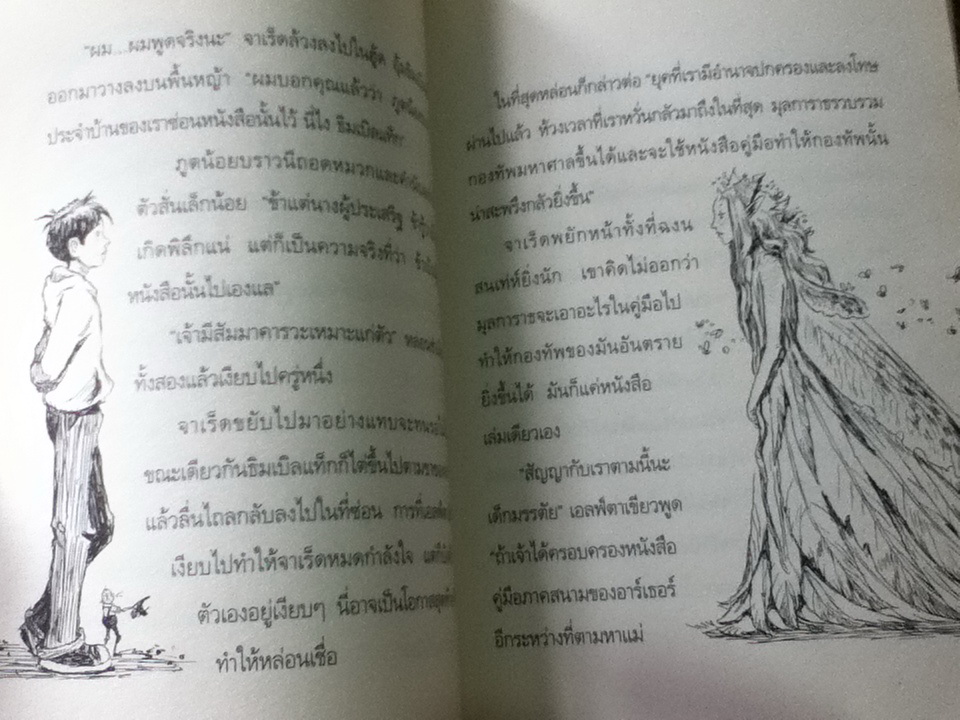 "ผม...ผมพูดจริงนะ" จาเร็ดล้วงลงไปในฮู้ด
ออกมาวางลงบนพื้นหญ้า "ผมบอกคุณแล้วว่า
ประจำบ้านของเราซ่อนหนังสือนั้นไว้ นี่ไง ธิมเบิลแท็ก"
ภูตน้อยบราวนีถอดหมวกและคำนับ
ตัวสั่นเล็กน้อย "ข้าแต่นางผู้ประเสริฐ
เกิดพิลึกแน่ แต่ก็เป็นความจริงที่ว่า
หนังสือนั้นไปเองแล"
"เจ้ามีสัมมาคารวะเหมาะแก่ตัว"
ทั้งสองแล้วเงียบไปครู่หนึ่ง
จาเร็ดขยับไปมาอย่างแทบจะทน
ขณะเดียวกันธิมเบิลแท็กก็ไต่ขึ้นไปตาม
แล้วลื่นไถลกลับลงไปในที่ซ่อน การที่เอลฟ์
เงียบไปทำให้จาเร็ดหมดกำลังใจ
ตัวเองอยู่เงียบๆ นี่อาจเป็นโอกาส
ทำให้หล่อนเชื่อ
ในที่สุดหล่อนก็กล่าวต่อ "ยุคที่เรามีอำนาจปกครองและลงโทษ
ผ่านไปแล้ว ห้วงเวลาที่เราหวั่นกลัวมาถึงในที่สุด มุลการาธรวบรวม
กองทัพมหาศาลขึ้นได้และจะใช้หนังสือคู่มือทำให้กองทัพนั้น
น่าสะพรึงกลัวยิ่งขึ้น"
จาเร็ดพยักหน้าทั้งที่ฉงน
สนเท่ห์ยิ่งนัก เขาคิดไม่ออกว่า
มุลการาธจะเอาอะไรในคู่มือไป
ทำให้กองทัพของมันอันตราย
ยิ่งขึ้นได้ มันก็แค่หนังสือ
เล่มเดียวเอง
"สัญญากับเราตามนี้นะ
เด็กมรรตัย" เอลฟ์ตาเขียวพูด
"ถ้าเจ้าได้ครอบครองหนังสือ
คู่มือภาคสนามของอาร์เธอร์
อีกระหว่างที่ตามหาแม่